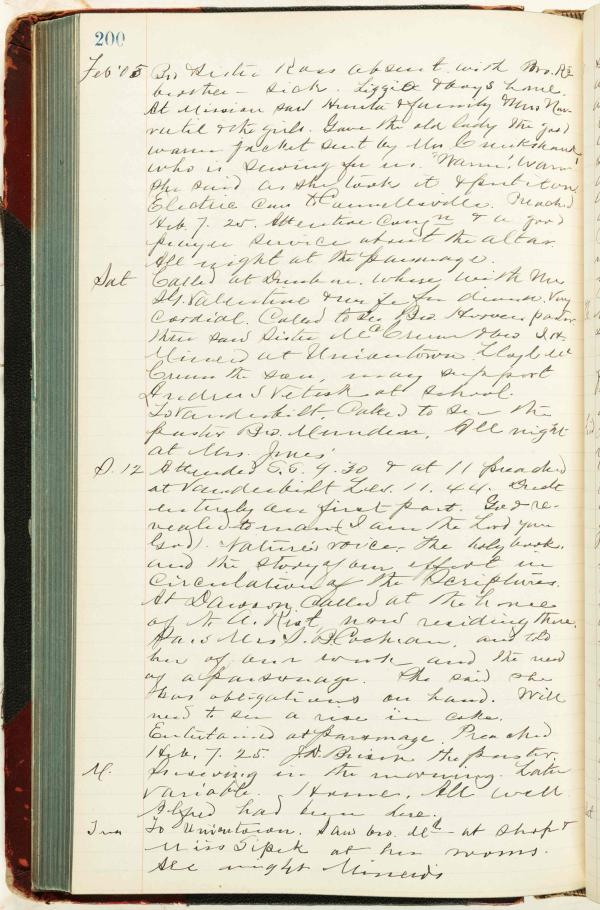 200
Feb '05 Bro & Sister Ross absent with Mrs. R's
brother - sick. Lizzie & boys home.
At Mission saw Hunka & family & Mrs Nav
ratil & the girls. Gave the old lady the good
warm jacket sent by Mrs. Cruikshank
who is sewing for us. "Warm! Warm!"
she said as she took it & put it on.
Electric car to Connellsville. Preached
Heb. 7. 25. Attentive Congn & a good
prayer service about the altar.
All night at the parsonage.
Sat Called at Dunbar. where with Mr
Valentine & wife for dinner. Very
cordial. Called to see Bro. Hoover pastor
then saw Sister McCrum & Bro
Minerd at Uniontown. Lloyd Mc
Crum the son, may support
Andrew S Vetisk at school.
To Vanderbilt. Called to see the
pastor Bro. Munden. All night
at Mrs. Jones'
S. 12 Attended S.S. 9.30 & at 11 preached
at Vanderbilt Lev. 11. 44.
entirely on first part. God re-
vealed to man (I am the Lord your
God). Nature's voice, the holy book,
and the story of our effort in
circulation of the Scriptures.
At Dawson, called at the home
of A. Rist, now residing there.
Mrs S. B. Cochran, and told
her of our work and the need
of a parsonage. She said she
has obligations on hand. Will
need to see a rise in coke.
Entertained at parsonage. Preached
Heb. 7. 25. the pastor.
M. Snowing in the morning. Later
variable. Home. All well.
had been here.
Tue To Uniontown. Saw bro. at shop &
Miss Tipek at her rooms.
All night Minerd's